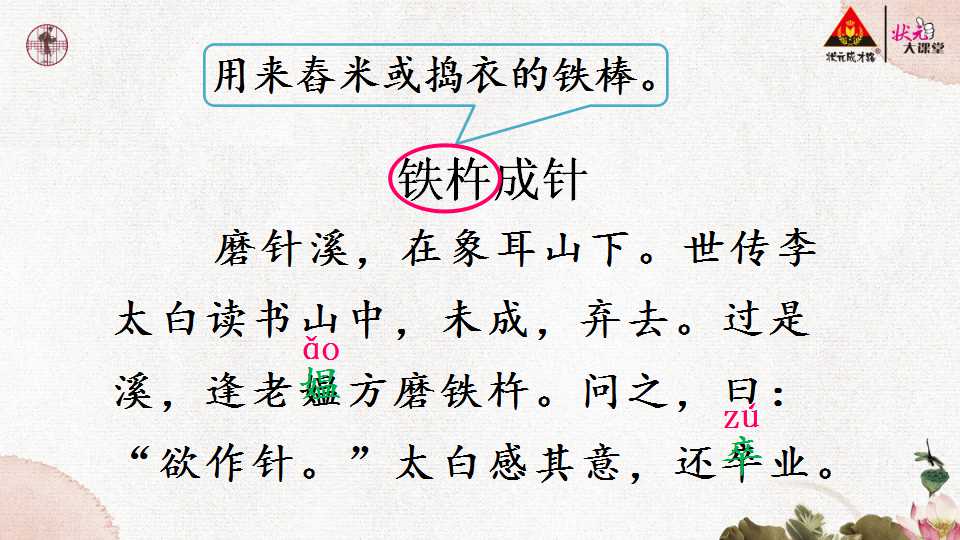 状元成才路
状元大课堂
用来舂米或捣衣的铁棒。
铁杵成针
磨针溪，在象耳山下。世传李
太白读书山中，未成，弃去。过是
ǎo
溪，逢老媪方磨铁杵。问之，曰：
zú
“欲作针。”太白感其意，还卒业。